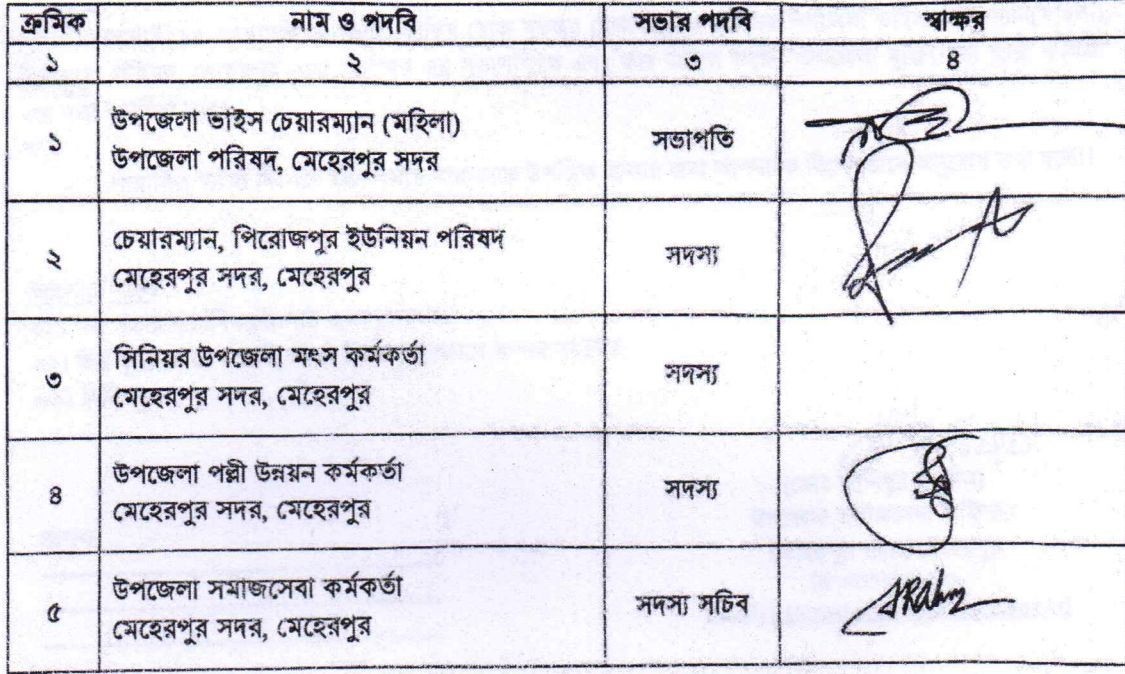 ক্রমিক নাম ও পদবি সভার পদবি স্বাক্ষর
১ ২ ৩ ৪
১ উপজেলা ভাইস চেয়ারম্যান (মহিলা)
উপজেলা পরিষদ, মেহেরপুর সদর সভাপতি
২ চেয়ারম্যান, পিরোজপুর ইউনিয়ন পরিষদ
মেহেরপুর সদর, মেহেরপুর সদস্য
৩ সিনিয়র উপজেলা মৎস কর্মকর্তা
মেহেরপুর সদর, মেহেরপুর সদস্য
৪ উপজেলা পল্লী উন্নয়ন কর্মকর্তা
মেহেরপুর সদর, মেহেরপুর সদস্য
৫ উপজেলা সমাজসেবা কর্মকর্তা
মেহেরপুর সদর, মেহেরপুর সদস্য সচিব